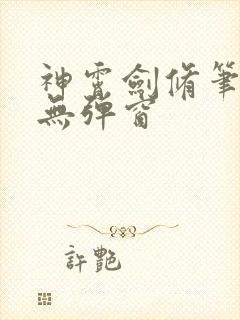 神霄劍脩筆
無彈窗
許艷